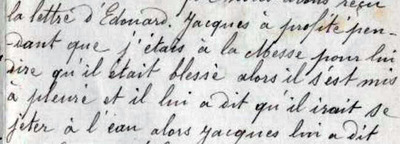 avons reçu
la lettre d'Edouard. Jacques a profité pen-
-dant que j'étais à la Messe pour lui
dire qu'il était blessé alors il s'est mis
à pleuré et il lui a dit qu'il irait se
jeter à l'eau alors Jacques lui a dit